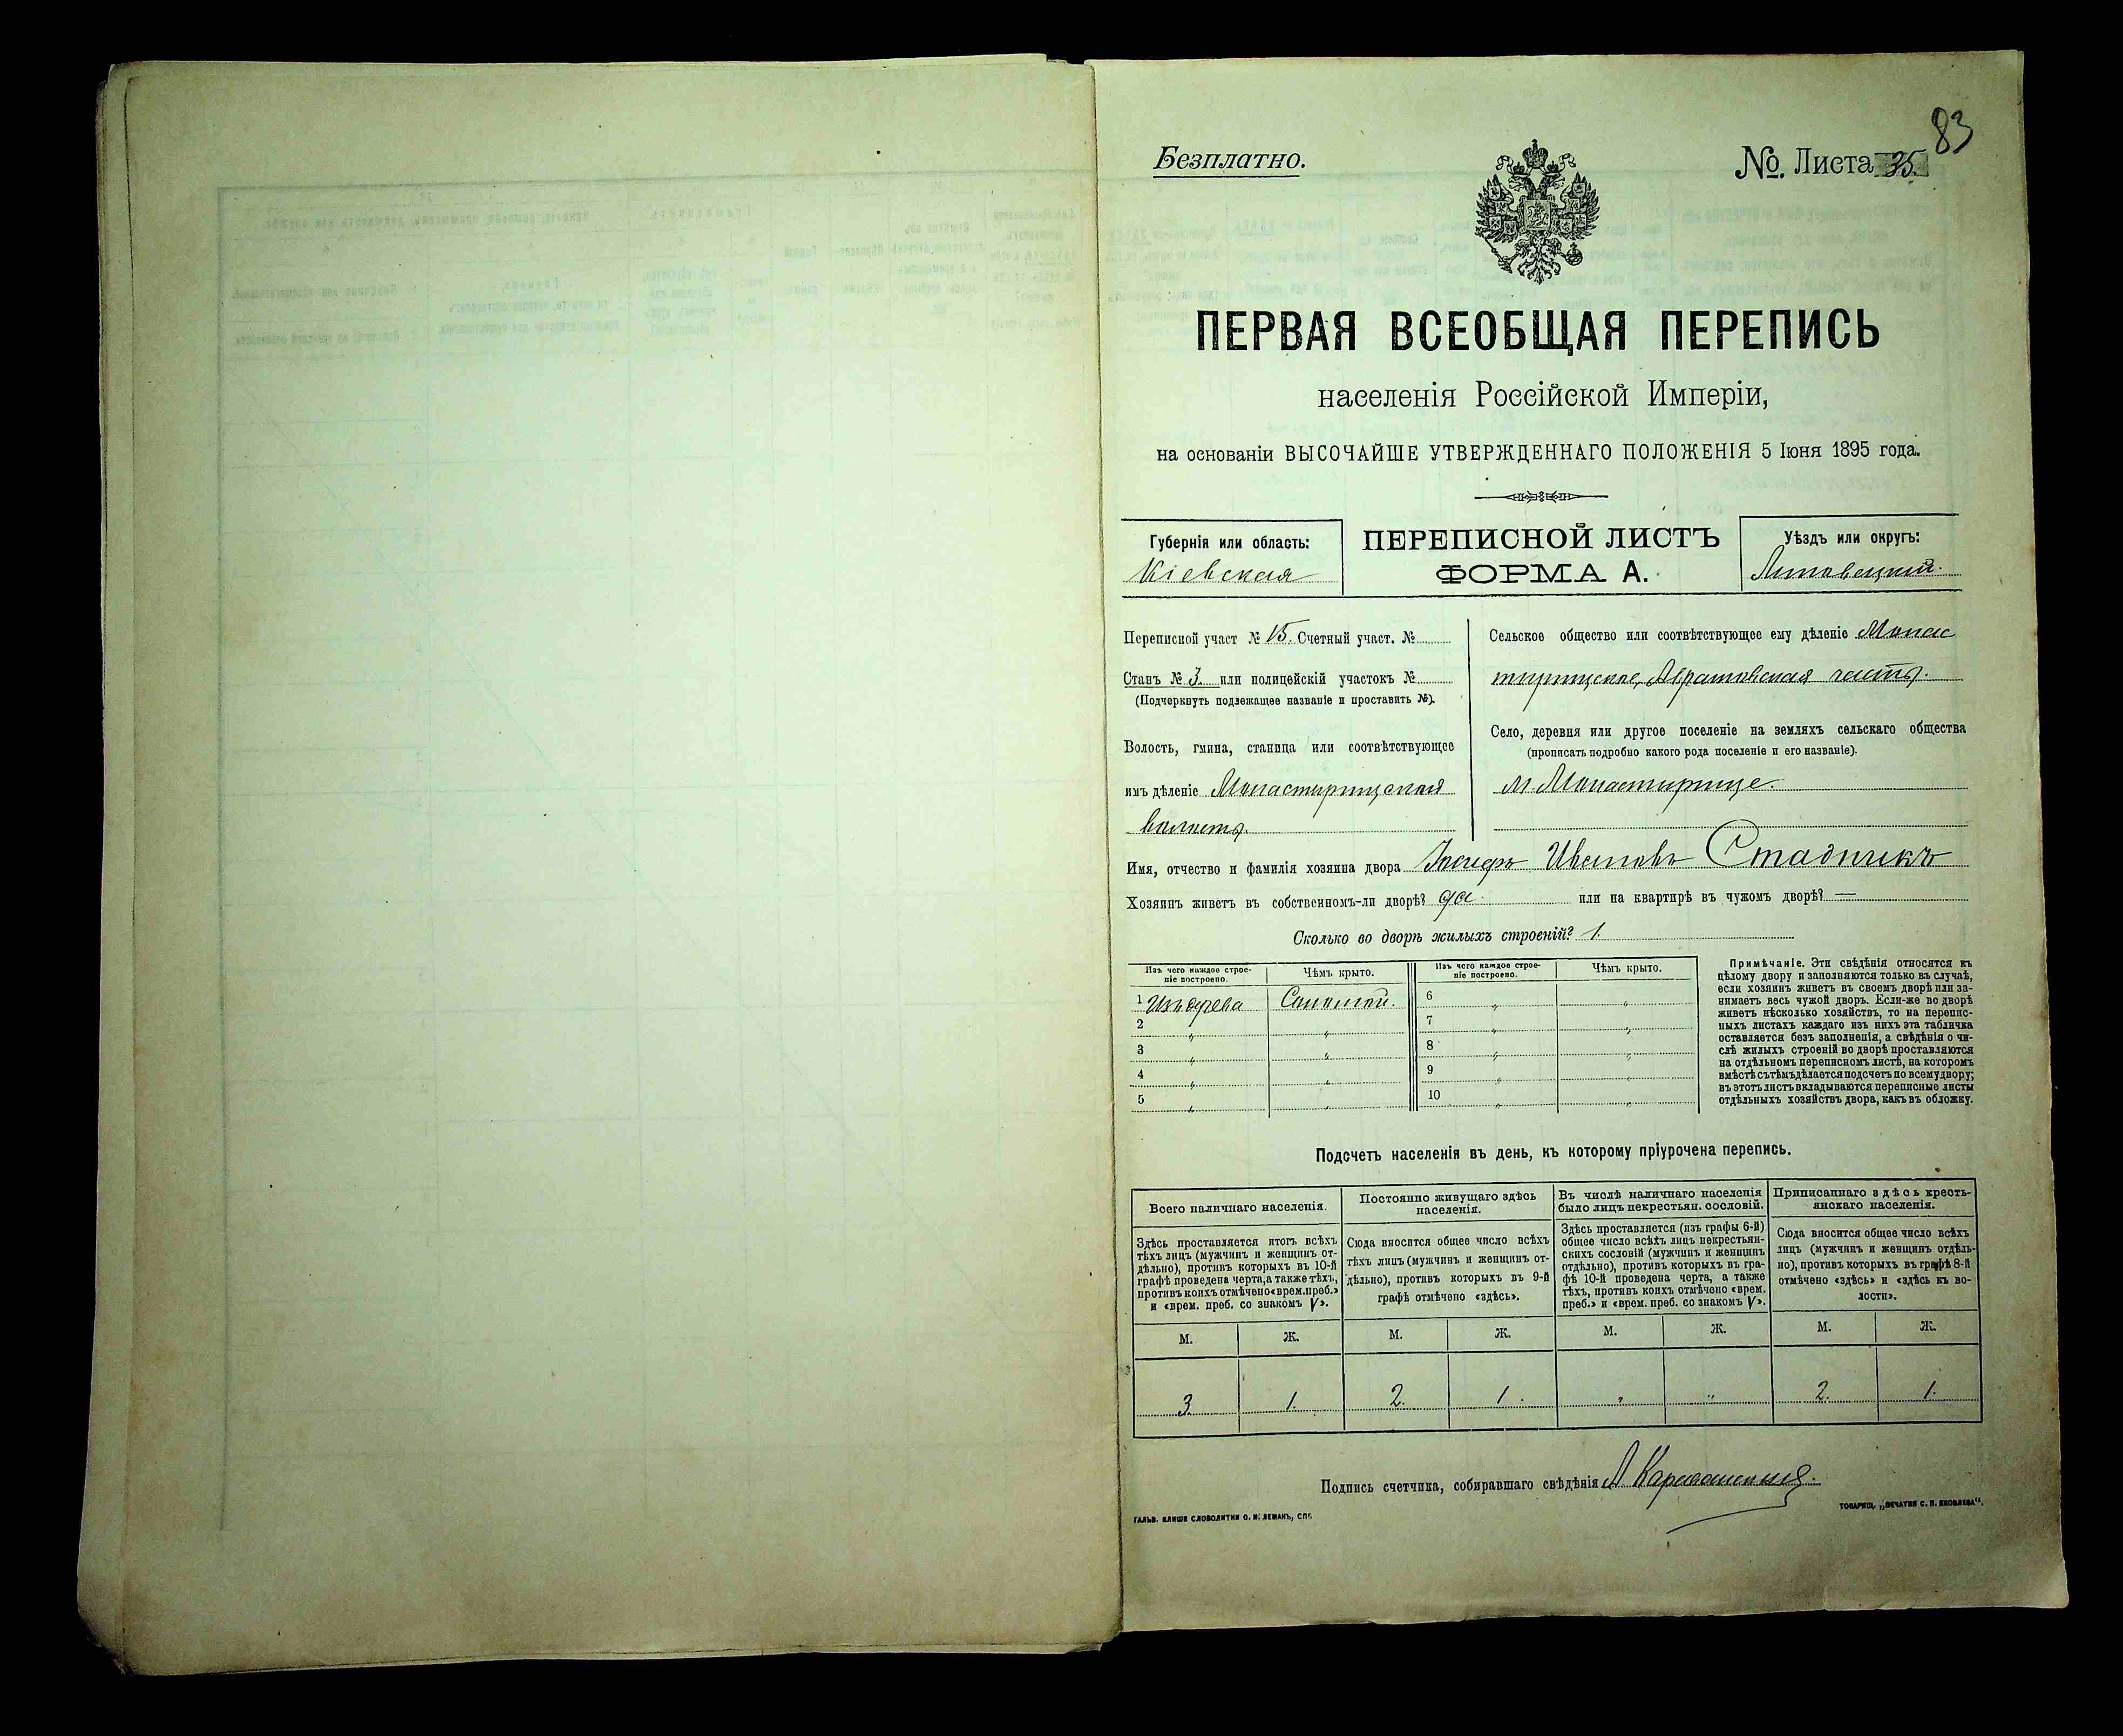 83
Безплатно.
№. Листа 35.
ПЕРВАЯ ВСЕОБЩАЯ ПЕРЕПИСЬ
населенія Россійской Имперіи,
на основаніи ВЫСОЧАЙШЕ УТВЕРЖДЕННАГО ПОЛОЖЕНІЯ 5 Іюня 1895 года.
Губернія или область:
Кіевская
ПЕРЕПИСНОЙ ЛИСТЪ
ФОРМА А.
Уѣздъ или округъ:
Липовецкій.
Переписной участ № 15. Счетный участ. №
Станъ № 3. или полицейскій участокъ №
(Подчеркнуть подлежащее названіе и проставить №).
Волость, гмина, станица или соотвѣтствующее
имъ дѣленіе Монастырищская
волость.
Сельское общество или соотвѣтствующее ему дѣленіе Монас
тирищское, Авратовская часть.
Село, деревня или другое поселеніе на земляхъ сельскаго общества
(прописать подробно какого рода поселеніе и его названіе).
м. Монастирище.
Имя, отчество и фамилія хозяина двора Іосифъ Ивановъ Стадникъ
Хозяинъ живетъ въ собственномъ-ли дворѣ? да. или на квартирѣ въ чужомъ дворѣ? —
Сколько во дворѣ жилыхъ строеній? 1.
Изъ чего каждое строе-
ніе построено.
Чѣмъ крыто.
Изъ чего каждое строе-
ніе построено.
Чѣмъ крыто.
1 Изъ древа Соломой. 6 „ „
2 „ „ 7 „ „
3 „ „ 8 „ „
4 „ „ 9 „ „
5 „ „ 10 „ „
Примѣчаніе. Эти свѣдѣнія относятся къ
цѣлому двору и заполняются только въ случаѣ,
если хозяинъ живетъ въ своемъ дворѣ или за-
нимаетъ весь чужой дворъ. Если-же во дворѣ
живетъ нѣсколько хозяйствъ, то на перепис-
ныхъ листахъ каждаго изъ нихъ эта табличка
оставляется безъ заполненія, а свѣдѣнія о чи-
слѣ жилыхъ строеній во дворѣ проставляются
на отдѣльномъ переписномъ листѣ, на которомъ
вмѣстѣ съ тѣмъ дѣлается подсчетъ по всему двору;
въ этотъ листъ вкладываются переписные листы
отдѣльныхъ хозяйствъ двора, какъ въ обложку.
Подсчетъ населенія въ день, къ которому пріурочена перепись.
Всего наличнаго населенія.
Постоянно живущаго здѣсь
населенія.
Въ числѣ наличнаго населенія
было лицъ некрестьян. сословій.
Приписаннаго здѣсь кресть-
янскаго населенія.
Здѣсь проставляется итогъ всѣхъ
тѣхъ лицъ (мужчинъ и женщинъ от-
дѣльно), противъ которыхъ въ 10-й
графѣ проведена черта, а также тѣхъ,
противъ коихъ отмѣчено «врем. преб.»
и «врем. преб. со знакомъ V».
Сюда вносится общее число всѣхъ
тѣхъ лицъ (мужчинъ и женщинъ от-
дѣльно), противъ которыхъ въ 9-й
графѣ отмѣчено «здѣсь».
Здѣсь проставляется (изъ графы 6-й)
общее число всѣхъ лицъ некрестьян-
скихъ сословій (мужчинъ и женщинъ
отдѣльно), противъ которыхъ въ гра-
фѣ 10-й проведена черта, а также
тѣхъ, противъ коихъ отмѣчено «врем.
преб.» и «врем. преб. со знакомъ V».
Сюда вносится общее число всѣхъ
лицъ (мужчинъ и женщинъ отдѣль-
но), противъ которыхъ въ графѣ 8-й
отмѣчено «здѣсь» и «здѣсь къ во-
лости».
М. Ж. М. Ж. М. Ж. М. Ж.
3. 1. 2. 1. „ „ 2. 1.
Подпись счетчика, собиравшаго свѣдѣнія А
ГАЛЬВ. КЛИШЕ СЛОВОЛИТНИ О. И. ЛЕМАНЪ, СПБ.
ТОВАРИЩ. „ПЕЧАТНЯ С. П. ЯКОВЛЕВА".